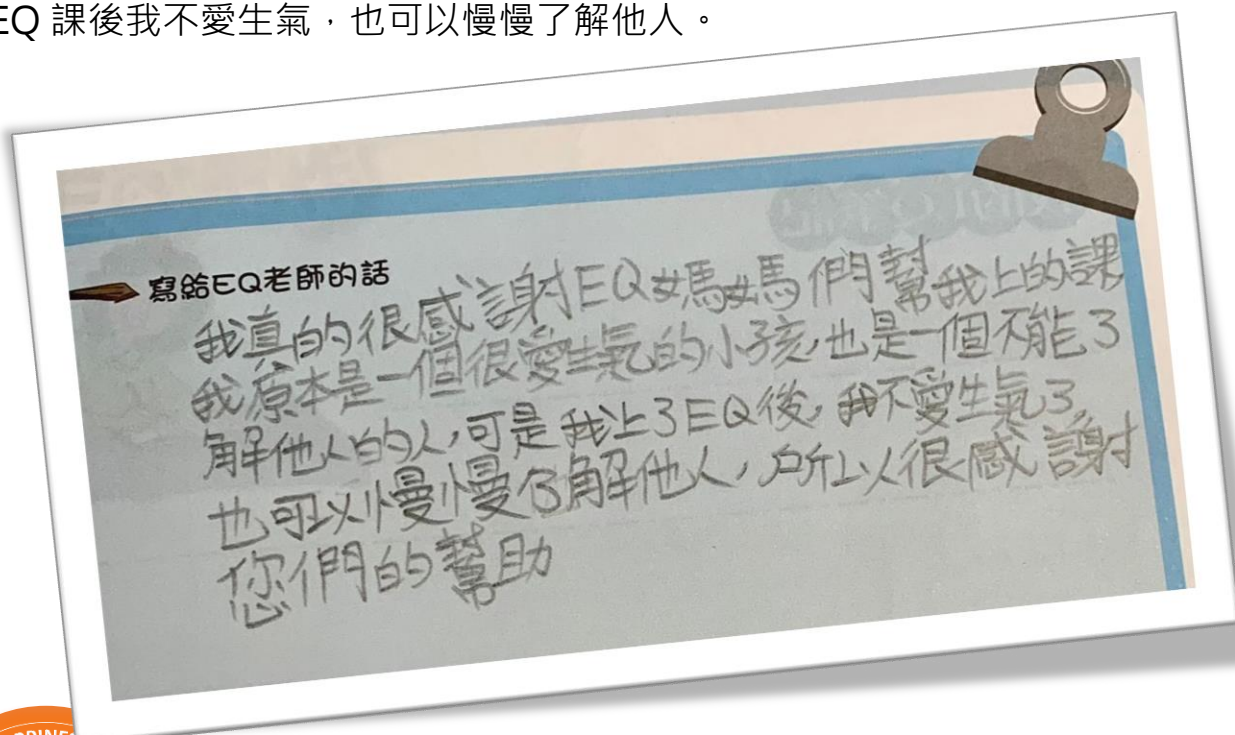 EQ 課後我不愛生氣，也可以慢慢了解他人。
寫給EQ老師的話
我真的很感謝EQ媽媽們幫我上的課
我原本是一個很愛生氣的小孩,也是一個不能了
解他人的人,可是我上了EQ後,我不愛生氣了,
也可以慢慢了解他人,所以很感謝
您們的幫助